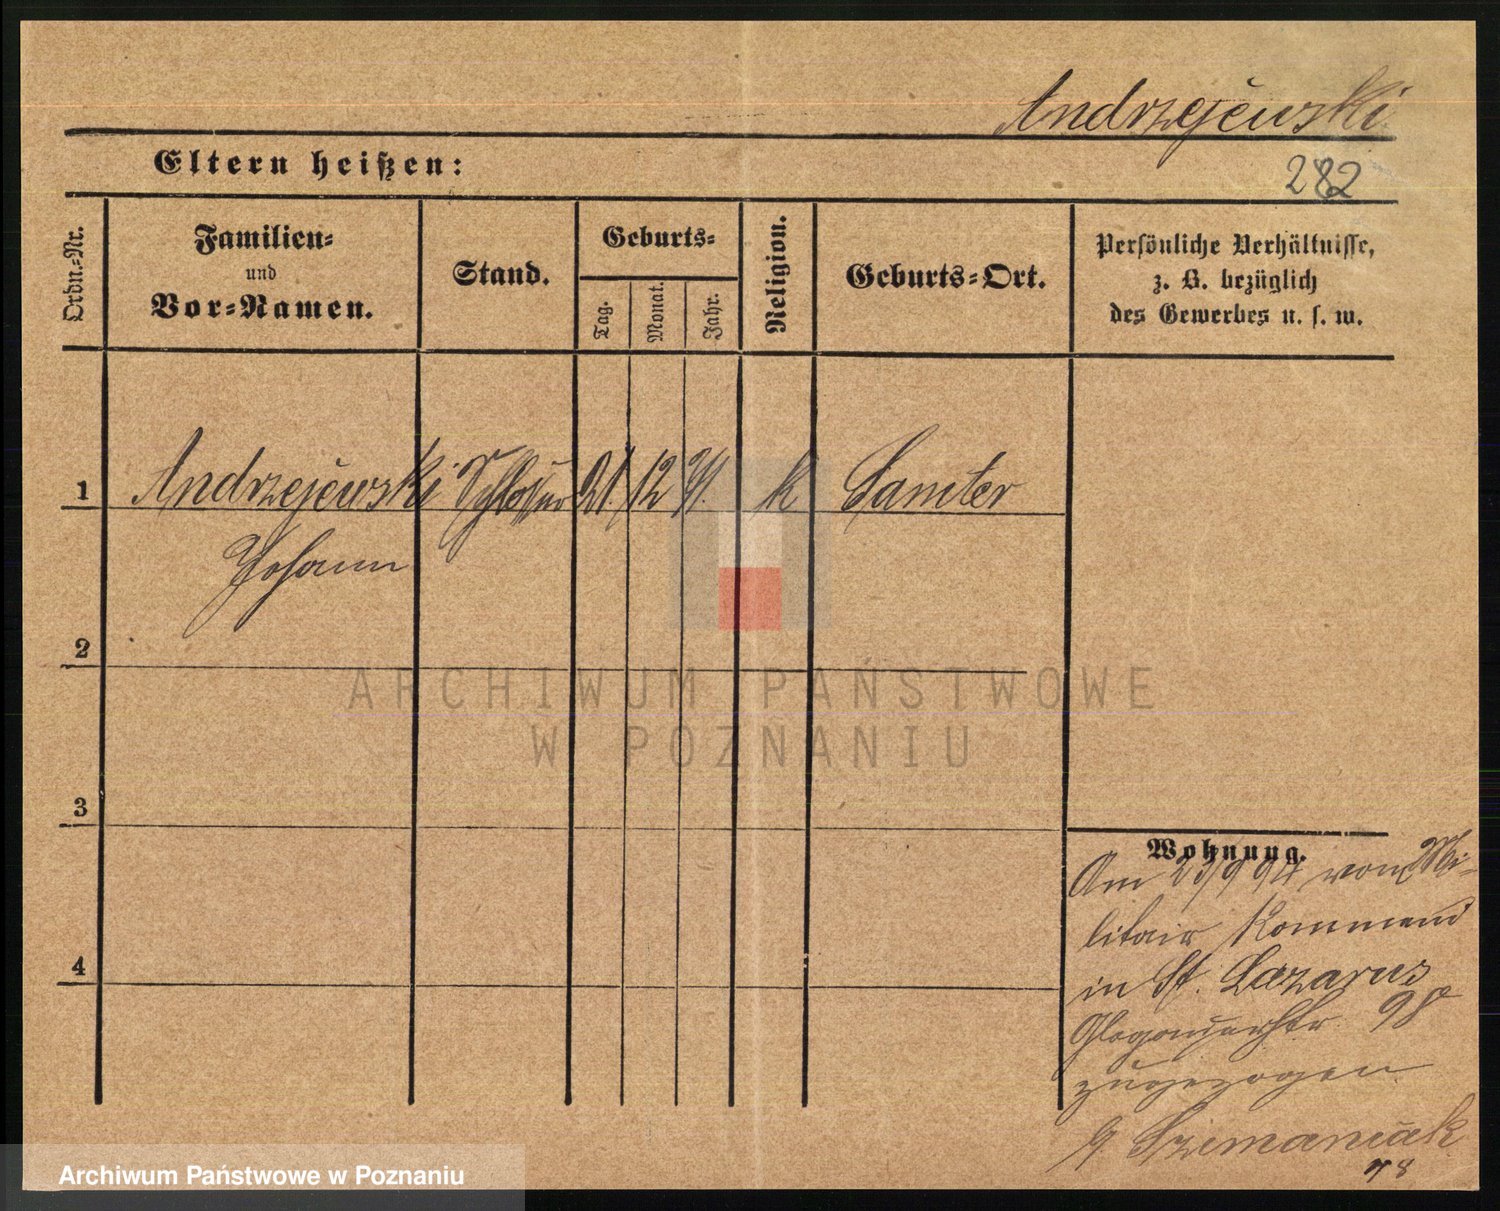 Andrzejewski
Eltern heißen:
282
Ordn.-Nr.
Familien-
und
Vor-Namen.
Stand.
Geburts-
Tag.
Monat.
Jahr.
Religion.
Geburts-Ort.
Persönliche Verhältnisse,
z. B. bezüglich
des Gewerbes u. s. w.
1
Andrzejewski Schlosser 21/12 71. k Samter
Johann
2
ARCHIWUM PAŃSTWOWE
W POZNANIU
3
Wohnung.
Am 23/9 94 vom Mi-
litair Kommand
4
in St. Lazarus
Glogauerstr. 98
zugezogen
Szymaniak
78
Archiwum Państwowe w Poznaniu